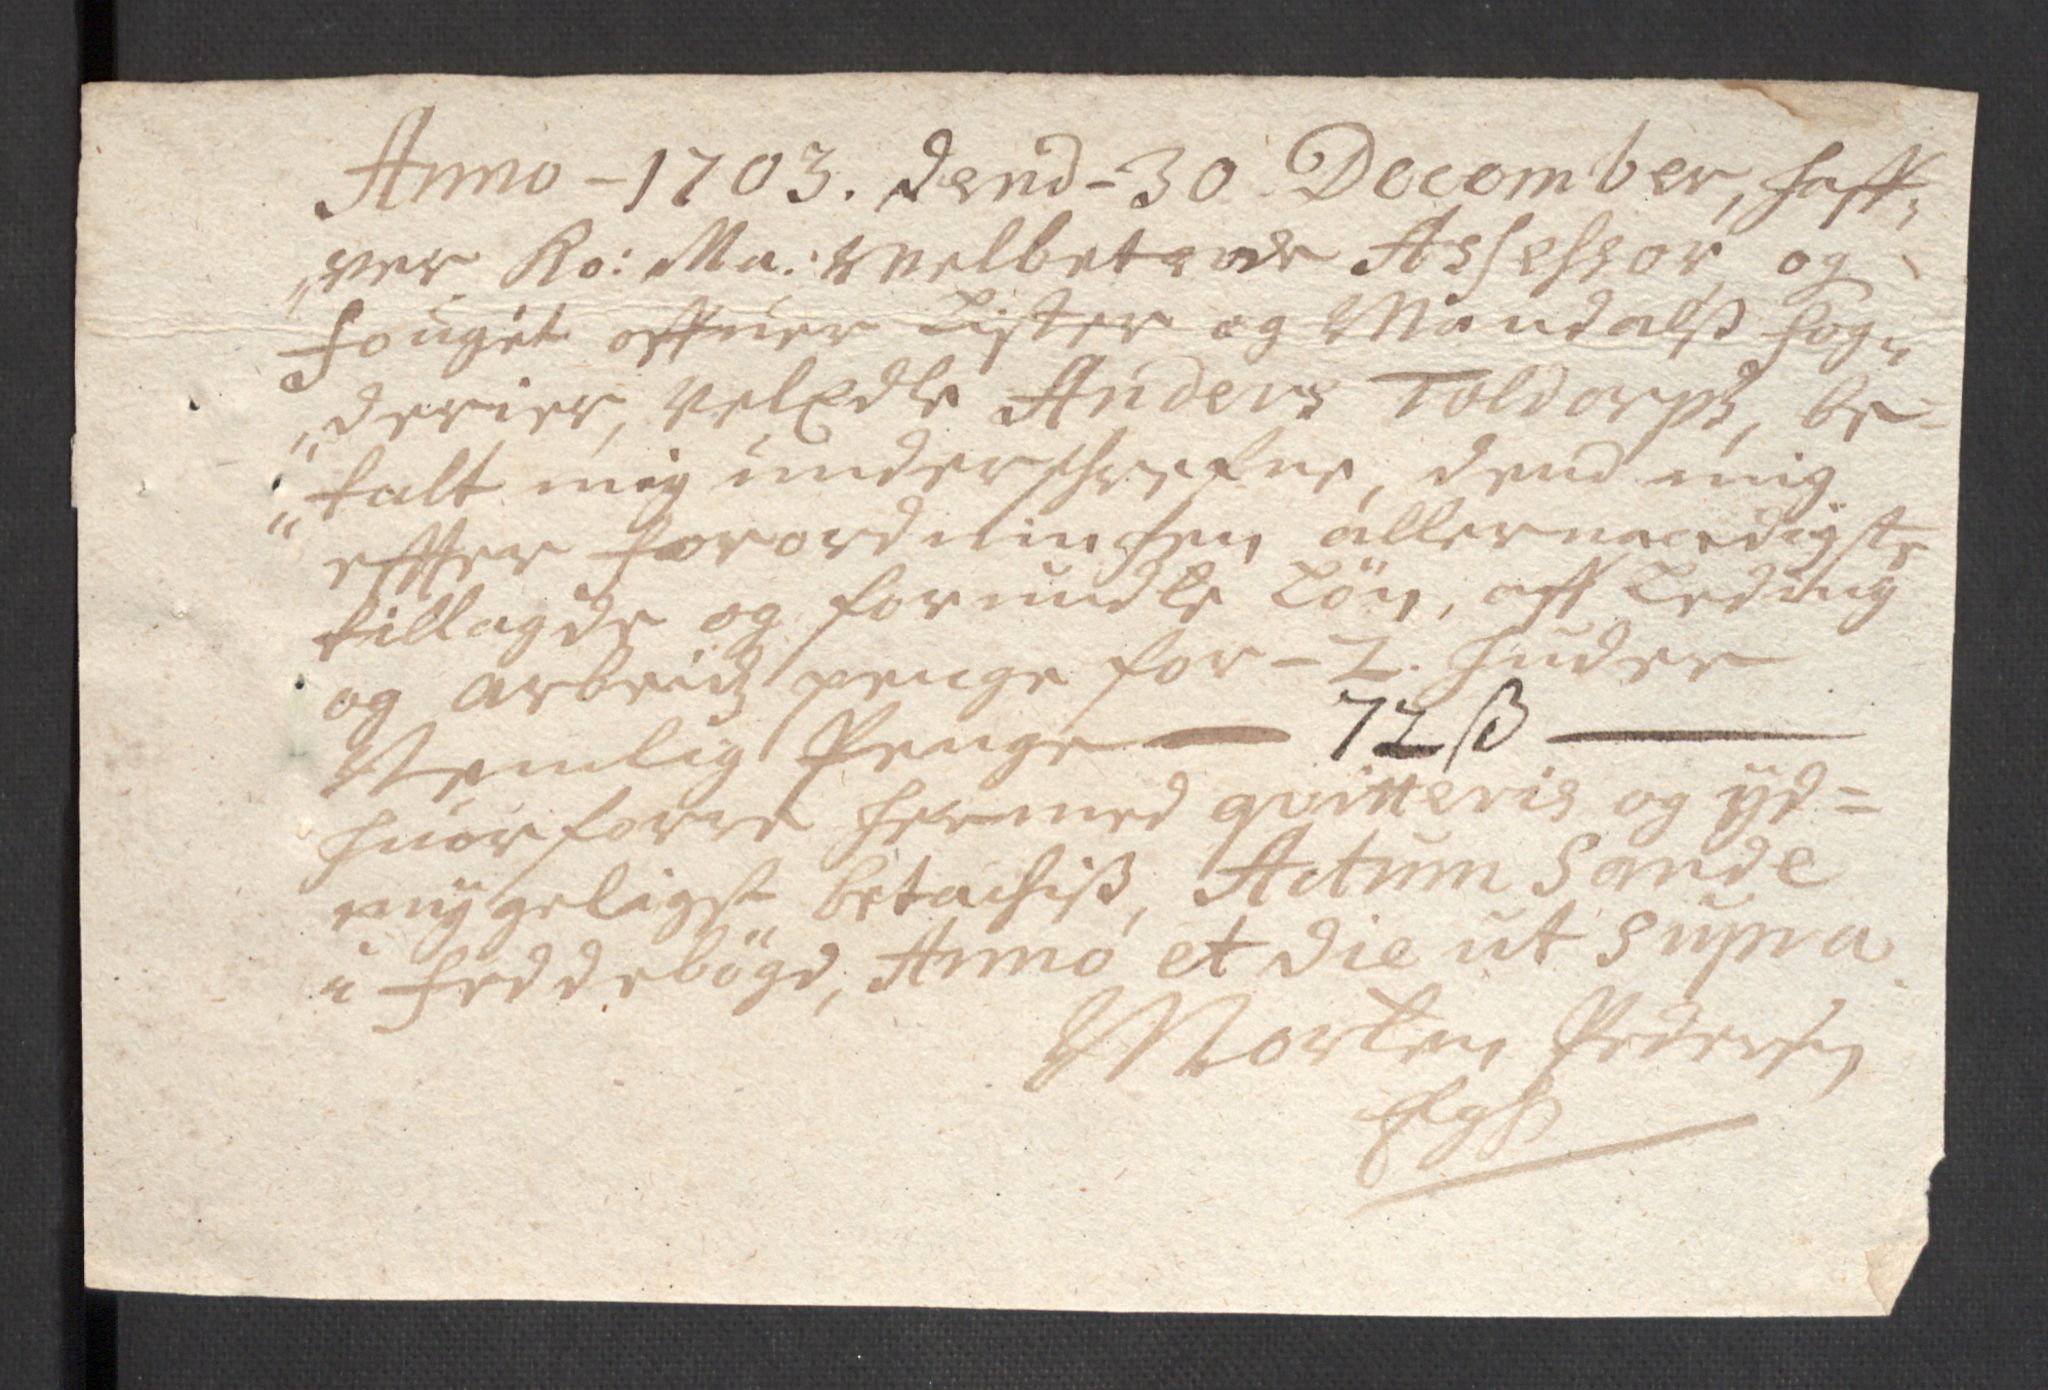 Anno - 1703. dend - 30 December, haff„
„ver Ko: Ma: Welbetrode Assessor og
Fouget offuer Lister og Mandalß fog„
„derier, VelEdle Anders Toldorph, be-
„talt mig underschrefne, dend mig
effter forordningen allernaadigste
tillagde og forundte Løn, aff Leding
og arbeidz penge for - 2. huder
Nemlig Penge — 72 ß —
huorforre hermed qvitteris og ÿd=
mygeligst betachiß, Actum Sande
i Feddebögd, Anno et die ut supra
Morten Pedersen